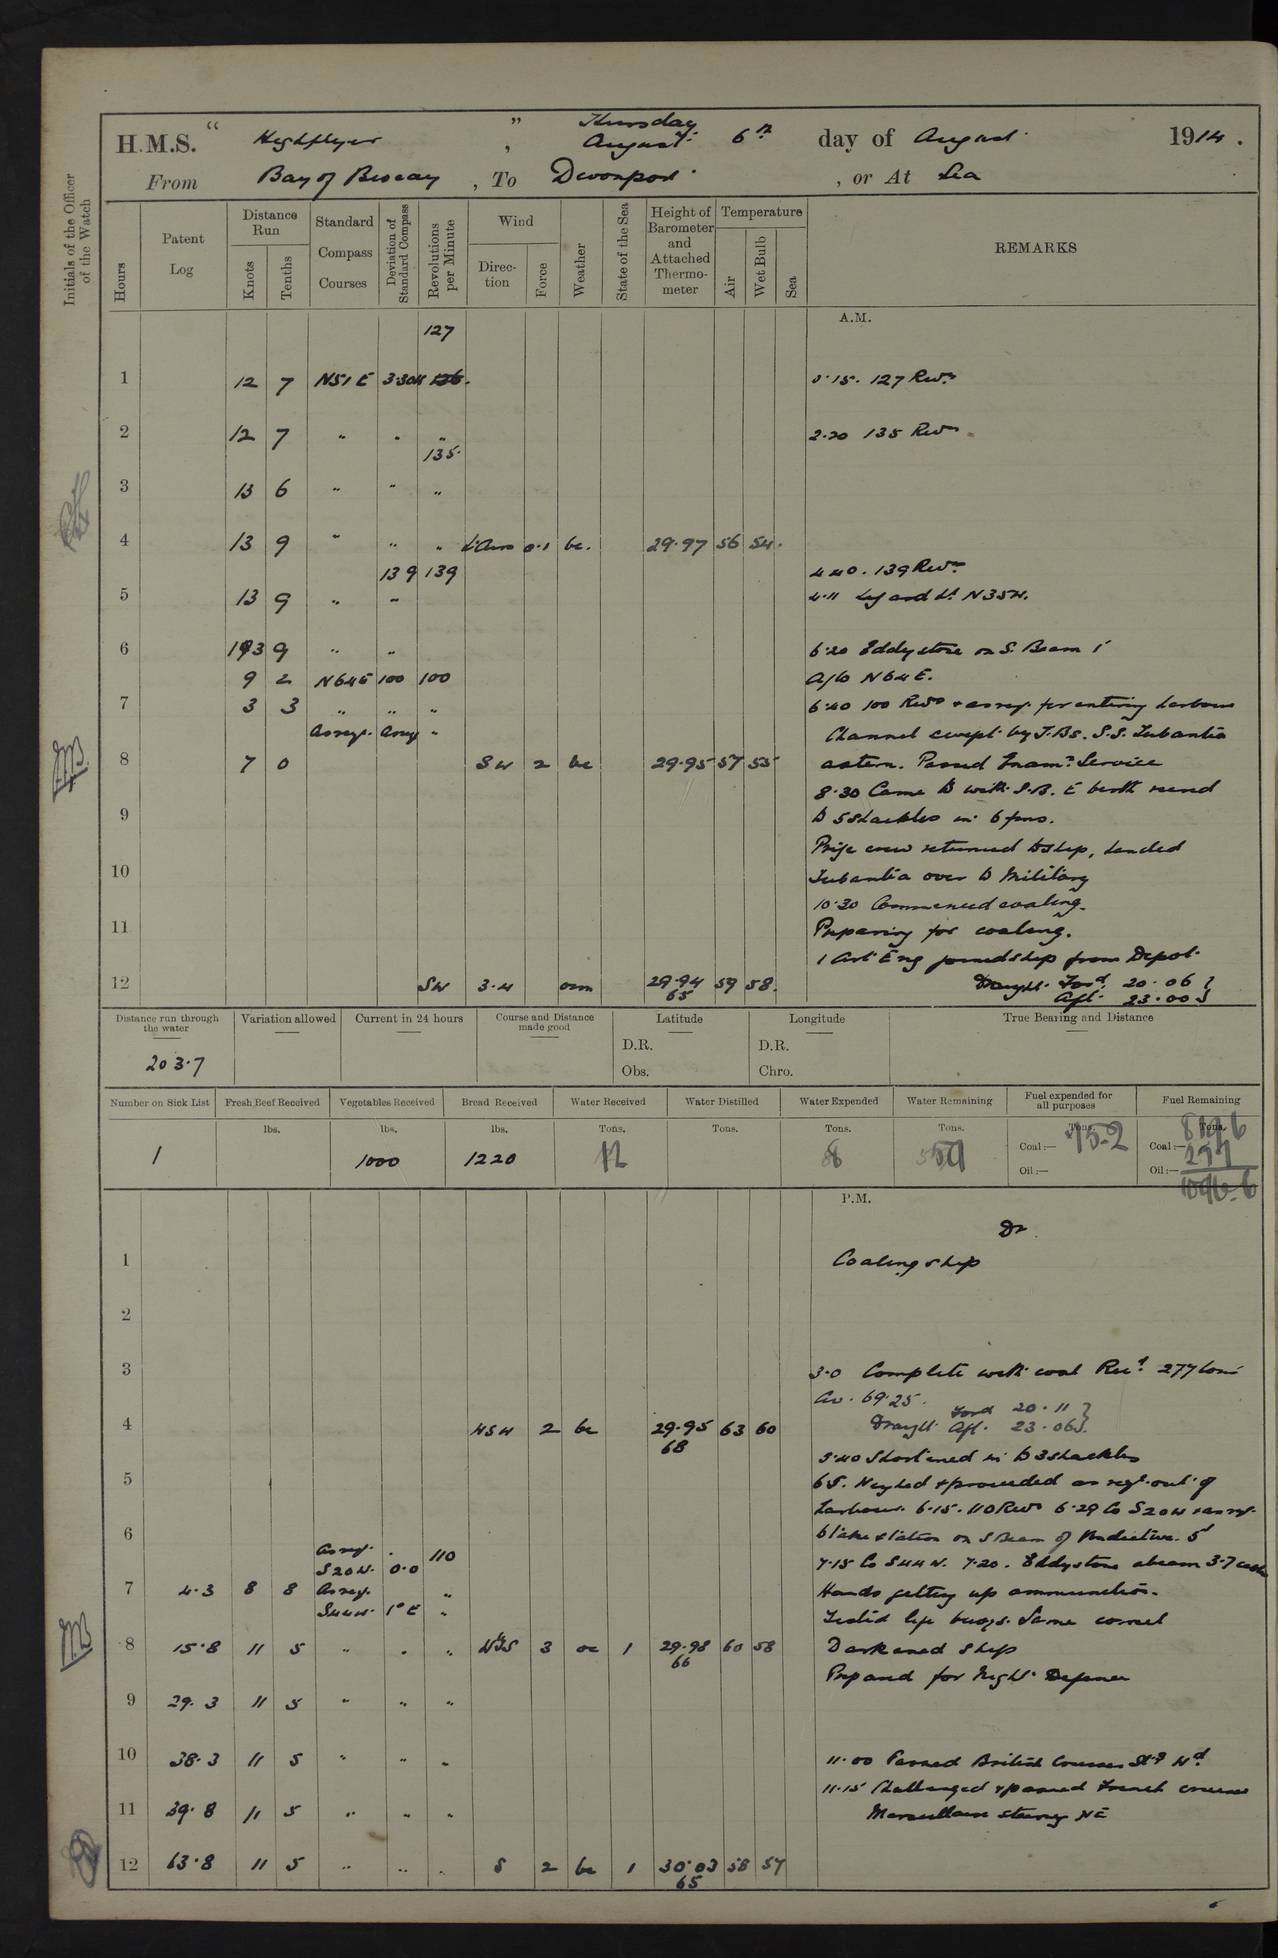 H.M.S. " Highflyer " , Thursday August 6th day of August 1914.
From Bay of Biscay , To Devonport , or At Sea
Initials of the Officer of the Watch
Hours Patent Log Distance Run Knots Tenths Standard Compass Courses Deviation of Standard Compass Revolutions per Minute Wind Direction Force Weather State of the Sea Height of Barometer and Attached Thermometer Temperature Air Wet Bulb Sea REMARKS
A.M.
127
1 12 7 N51E 126. 5.15. 127 Revs
2 12 7 " " " 2.20 135 Revs
135.
3 13 6 " " "
4 13 9 " " " 0.1 bc. 29.97 56 54.
139 139 4.40. 139 Revs
5 13 9 " " 4.11 Lt. N35W.
6 13 9 " " 6.20 Eddystone on S. Beam
9 2 N64E 100 100 A/Co N64E.
7 3 3 " " " 6.40 100 Revs & as req. for entering harbour
As req. As req " Channel swept by T.Bs. S.S. Tubantia
8 7 0 SW 2 bc 29.95 57 55 astern. Passed Service
8.30 Came to with S.B. E berth
9 to 5 shackles in 6 fms.
Prize crew returned to ship, handed
10 Tubantia over to Military
10.30 Commenced coaling.
11 Preparing for coaling.
1 Art. Eng joined ship from Depot.
12 SW 3.4 29.94 59 58. Draught. Ford. 20.06
65 Aft. 23.00
Distance run through the water Variation allowed Current in 24 hours Course and Distance made good Latitude Longitude True Bearing and Distance
D.R. D.R.
203.7
Obs. Chro.
Number on Sick List Fresh Beef Received Vegetables Received Bread Received Water Received Water Distilled Water Expended Water Remaining Fuel expended for all purposes Fuel Remaining
lbs. lbs. lbs. Tons. Tons. Tons. Tons. Tons. Tons.
1 1000 1220 12 8 Coal:— 75.2 Coal:— 819.6
Oil:— Oil:— 277
1096.6
P.M.
1 Coaling ship
2
3 3.0 Complete with coal Recd. 277 tons
Av. 69.25.
Ford 20.11
4 WSW 2 bc 29.95 63 60 Draught. Aft. 23.06
68
5.40 Shortened in to 3 shackles
5 6.5. Weighed & proceeded as reqd. out of
harbour. 6.15. 110 Revs 6.29 Co S20W & as req.
6 to take station on S Beam of Vindictive. 5'
As req. 110
S20W. 0.0 7.15 Co S44W. 7.20. Eddystone abeam 3.7
7 4.3 8 8 As req. " Hands getting up ammunition.
S44W. 1° E " Tested life buoys. Same correct
8 15.8 11 5 " " " 3 oc 1 29.98 60 58 Darkened ship
66
Prepared for Night Defence
9 29.3 11 5 " " "
10 38.3 11 5 " " " 11.00 Passed British Cruisers
11.15 Challenged & passed French cruiser
11 39.8 11 5 " " " Marseillaise steering NE
12 63.8 11 5 " " " S 2 bc 1 30.03 58 57
65
6